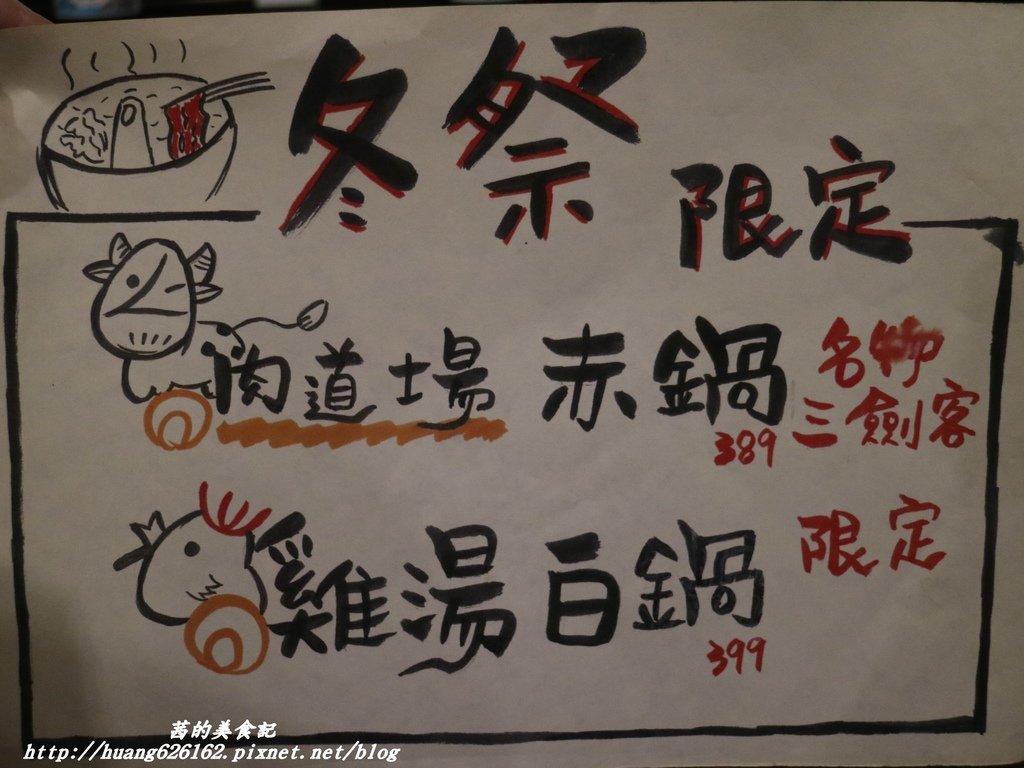 冬祭 限定
肉道場 赤鍋 389
名物
三劍客
雞湯白鍋 399
限定
茜的美食記
http://huang626162.pixnet.net/blog